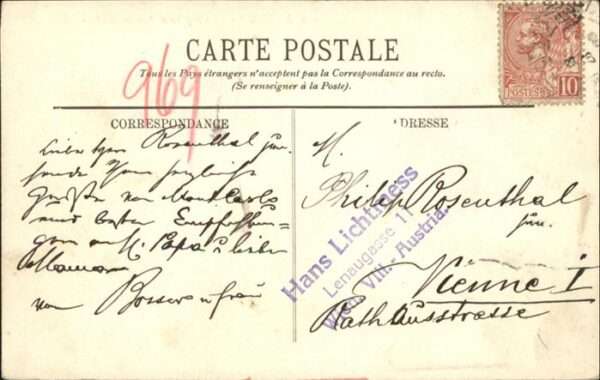 CARTE POSTALE
Tous les Pays étrangers n'acceptent pas la Correspondance au recto.
(Se renseigner à la Poste).
969
CORRESPONDANCE
Lieber Herr Rosenthal jun.
sende Ihnen herzliche
Grüße von Monte Carlo
und besten Empfehlun-
gen an H. Papa u lieben
Mama
von u frau
ADRESSE
M.
Philip Rosenthal
jun.
Vienne I
Rathausstrasse
Hans Lichtness
Lenaugasse 11
Wien VIII. Austria.
POSTES
10